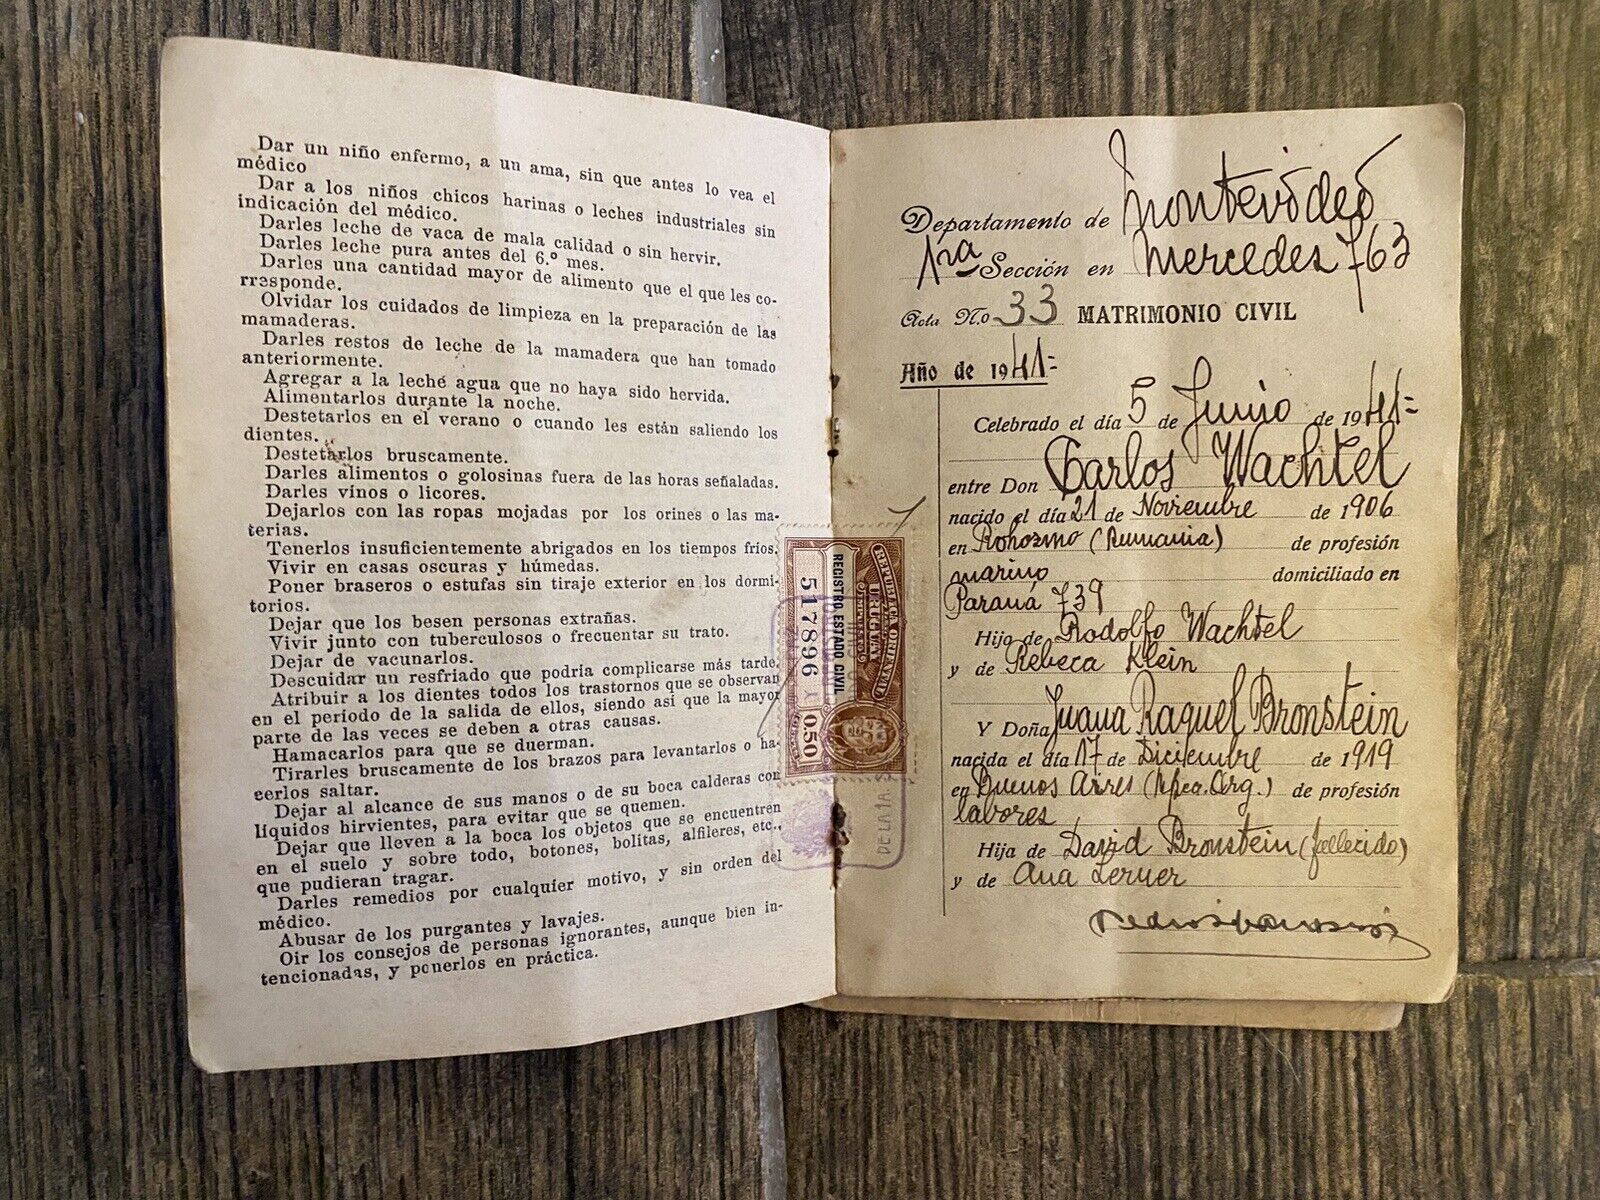 Dar un niño enfermo, a un ama, sin que antes lo vea el
médico
Dar a los niños chicos harinas o leches industriales sin
indicación del médico.
Darles leche de vaca de mala calidad o sin hervir.
Darles leche pura antes del 6.º mes.
Darles una cantidad mayor de alimento que el que les co-
rresponde.
Olvidar los cuidados de limpieza en la preparación de las
mamaderas.
Darles restos de leche de la mamadera que han tomado
anteriormente.
Agregar a la leché agua que no haya sido hervida.
Alimentarlos durante la noche.
Destetarlos en el verano o cuando les están saliendo los
dientes.
Destetarlos bruscamente.
Darles alimentos o golosinas fuera de las horas señaladas.
Darles vinos o licores.
Dejarlos con las ropas mojadas por los orines o las ma-
terias.
Tenerlos insuficientemente abrigados en los tiempos fríos.
Vivir en casas oscuras y húmedas.
Poner braseros o estufas sin tiraje exterior en los dormi-
torios.
Dejar que los besen personas extrañas.
Vivir junto con tuberculosos o frecuentar su trato.
Dejar de vacunarlos.
Descuidar un resfriado que podría complicarse más tarde.
Atribuir a los dientes todos los trastornos que se observan
en el período de la salida de ellos, siendo asi que la mayor
parte de las veces se deben a otras causas.
Hamacarlos para que se duerman.
Tirarles bruscamente de los brazos para levantarlos o ha-
cerlos saltar.
Dejar al alcance de sus manos o de su boca calderas con
líquidos hirvientes, para evitar que se quemen.
Dejar que lleven a la boca los objetos que se encuentren
en el suelo y sobre todo, botones, bolitas, alfileres, etc.,
que pudieran tragar.
Darles remedios por cualquier motivo, y sin orden del
médico.
Abusar de los purgantes y lavajes.
Oir los consejos de personas ignorantes, aunque bien in-
tencionadas, y ponerlos en práctica.
REPUBLICA ORIENTAL
URUGUAY
IMPUESTO
REGISTRO ESTADO CIVIL
517896
0.50
DE LA 1A.
Departamento de Montevideo
1ra Sección en Mercedes 763
Acta N.o 33 MATRIMONIO CIVIL
Año de 1941=
Celebrado el día 5 de Junio de 1941=
entre Don Carlos Wachtel
nacido el día 21 de Noviembre de 1906
en Rohozmo (Rumania) de profesión
marino domiciliado en
Paraná 739
Hijo de Rodolfo Wachtel
y de Rebeca Klein
Y Doña Juana Raquel Bronstein
nacida el día 17 de Diciembre de 1919
en Buenos Aires (Rpca. Arg.) de profesión
labores
Hija de David Bronstein (fallecido)
y de Ana Lerner